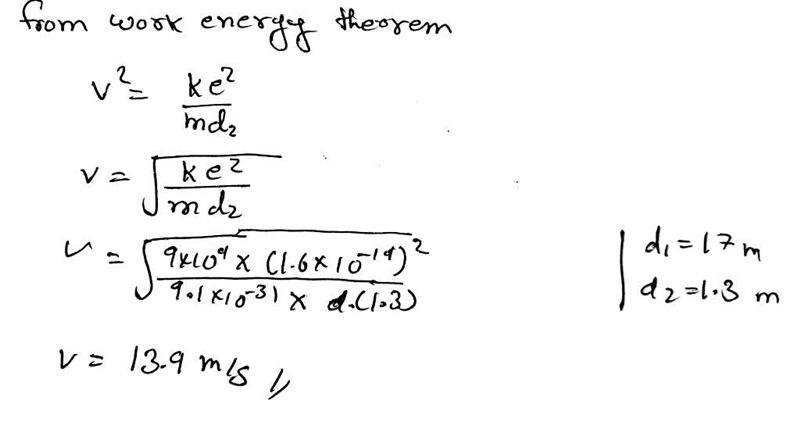 from work energy theorem
v² = ke² / md₂
v = √(ke² / md₂)
v = √(9×10⁹ × (1.6×10⁻¹⁹)² / 9.1×10⁻³¹ × d.(1.3))
d₁ = 17 m
d₂ = 1.3 m
v = 13.9 m/s